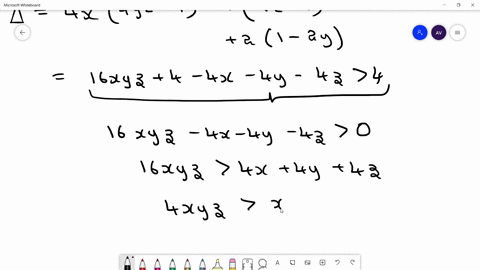 Microsoft Whiteboard
Δ = 4x (4yz
+2(1-2y)
= 16xyz +4 -4x -4y - 4z >4
16 xyz -4x-4y -4z >0
16xyz > 4x +4y +4z
4xyz > x